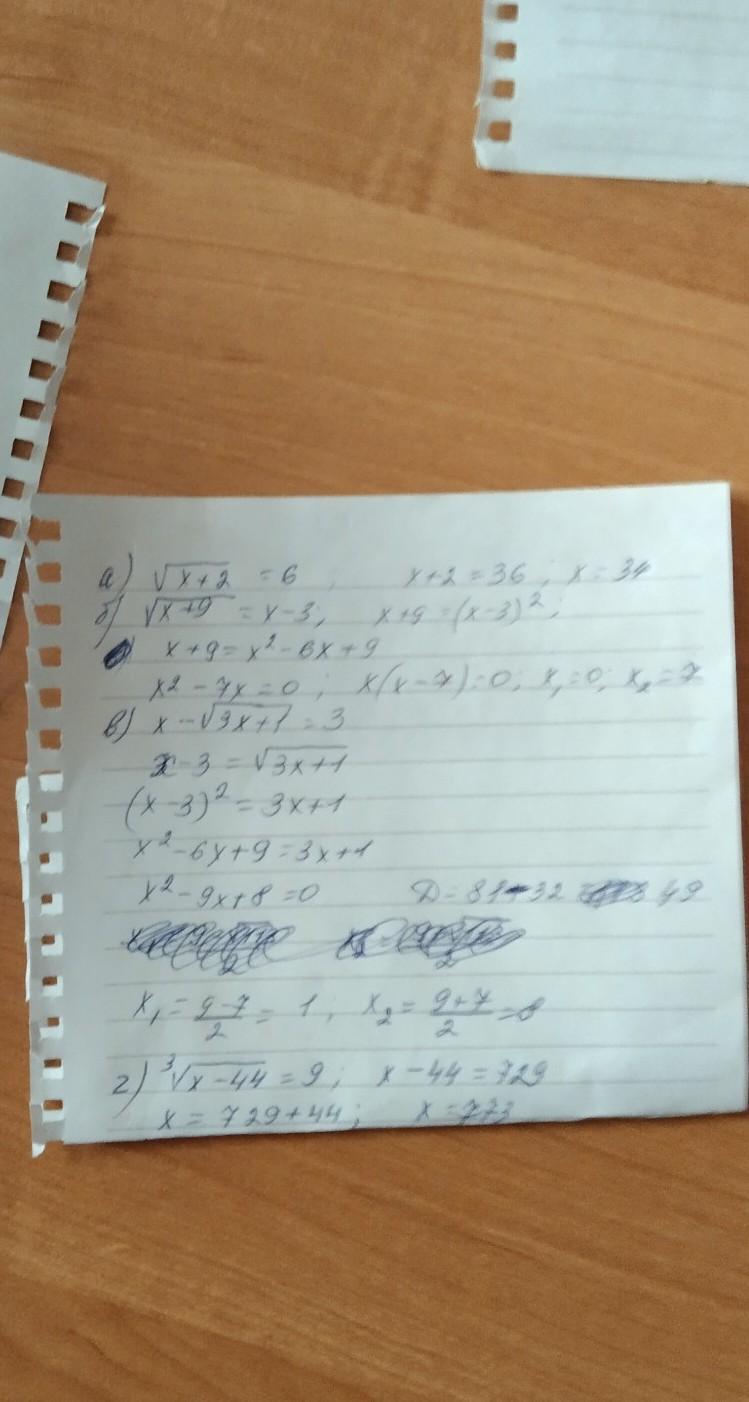 а) √x+2 = 6 ; x+2=36 ; x=34
б) √x+9 = x-3; x+9=(x-3)²;
x+9=x²-6x+9
x²-7x=0 ; x(x-7)=0; x₁=0; x₂=7
в) x-√3x+1=3
x-3=√3x+1
(x-3)²=3x+1
x²-6x+9=3x+1
x²-9x+8=0 D=81-32 49
x₁=(9-7)/2=1; x₂=(9+7)/2=8
г) ³√x-44=9; x-44=729
x=729+44; x=773